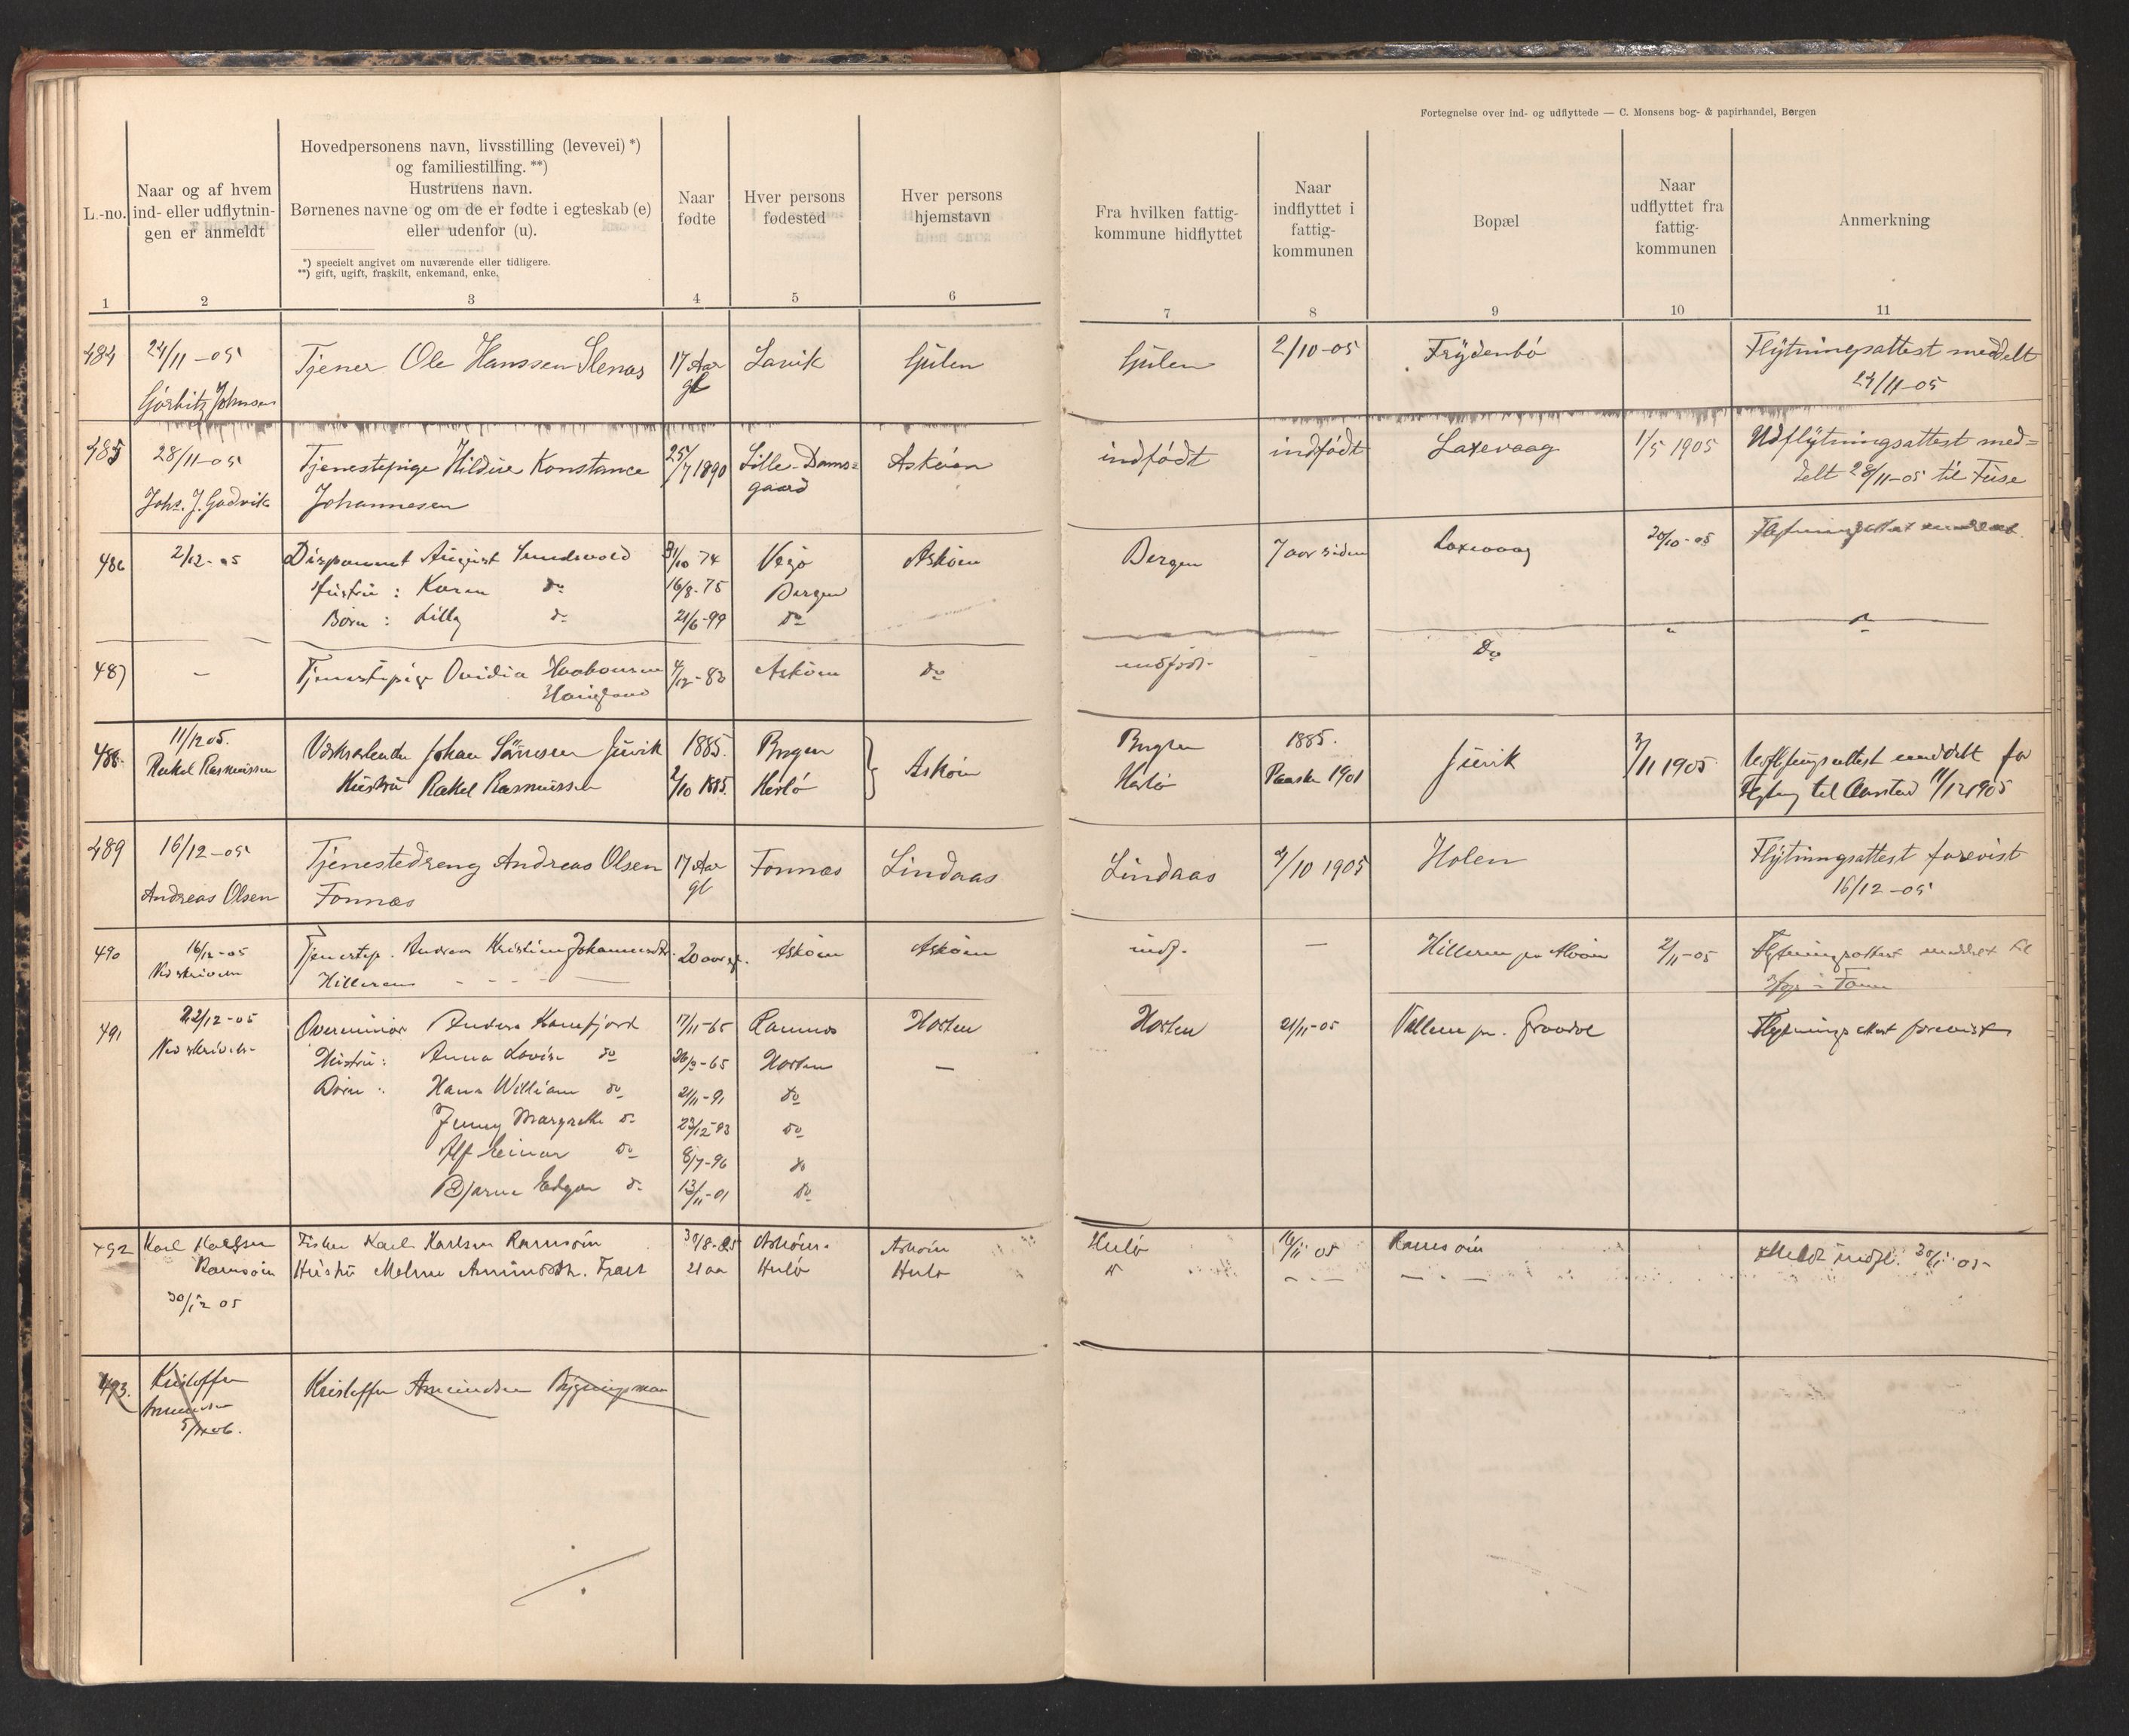 Fortegnelse over ind- og udflyttede — C. Monsens bog- & papirhandel, Bergen
L.-no.
Naar og af hvem
ind- eller udflytnin-
gen er anmeldt
Hovedpersonens navn, livsstilling (levevei) *)
og familiestilling. **)
Hustruens navn.
Børnenes navne og om de er fødte i egteskab (e)
eller udenfor (u).
*) specielt angivet om nuværende eller tidligere.
**) gift, ugift, fraskilt, enkemand, enke.
Naar
fødte
Hver persons
fødested
Hver persons
hjemstavn
Fra hvilken fattig-
kommune hidflyttet
Naar
indflyttet i
fattig-
kommunen
Bopæl
Naar
udflyttet fra
fattig-
kommunen
Anmerkning
1 2 3 4 5 6 7 8 9 10 11
484 24/11-05 Tjener Ole Hanssen Slenæs 17 Aar Lavik Gulen Gulen 2/10-05 Frydenbø Flytningsattest meddelt
Gørbitz Johnsen gl 24/11-05
485 28/11-05 Tjenestepige Hildur Konstance 25/7 1890 Lille-Dams= Askøen indfødt indfødt Laxevaag 1/5 1905 Udflytningsattest med=
Johs. J. Gadvik Johannesen gaard delt 28/11-05 til Fuse
486 2/12-05 Disponent August Sundvold 31/10 74 Askøen Bergen 7 aar siden Laxevaag 20/10-05
Hustru: Karen do 16/8-75 Bergen
Børn: Lilly do 21/6-99 do
487 — Tjenestepige Ovidia 4/12-83 Askøen do indfødt - Do " "
488. 11/12 05. Johan Juvik 1885 Bergen Askøen Bergen 1885. Juvik 3/11 1905 Udflytningsattest meddelt for
Rakel Rasmussen Hustru Rakel Rasmussen 2/10 1885. Herlø Herlø Paaske 1901 Flytning til 11/12 1905
489 16/12-05 Tjenestedreng Andreas Olsen 17 Aar Fonnæs Lindaas Lindaas 4/10 1905 Holen Flytningsattest forevist
Andreas Olsen Fonnæs gl 16/12-05
490 16/12-05 Tjenestep. Andrea Kristine Johannesdtr. 20 aar gl. Askøen Askøen indf. — Hilleren pr Alvøen 2/11-05 Flytningsattest meddelt til
Ved skrivelse Hilleren
491 22/12-05 Overminør Anders Kamfjord 17/11-65 Ramnes Horten Horten 21/11-05 pr. Gravdal Flytningsattest forevist
Ved skrivelse Hustru: Anna Lovise do 26/3-65 Horten —
Børn: Hans William do 21/11-91 do
Jenny Margrethe do 23/12-93 do
Alf Einar do 8/7-96 do
Bjarne Edgar do 13/11-01 do
492 Karl Karlsen Fisker Karl Karlsen Ramsøin 30/8-85 Askøen Askøen Herlø 16/11 05 Ramsøin Meldt indfl. 30/11 05
Ramsøin Hustru 21 aar Herlø Herlø "
30/12 05
493. Kristoffer Kristoffer Amundsen Bygningsmand
Amundsen